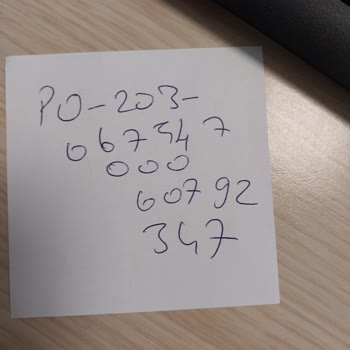 PO-203-
067547
000
60792
347